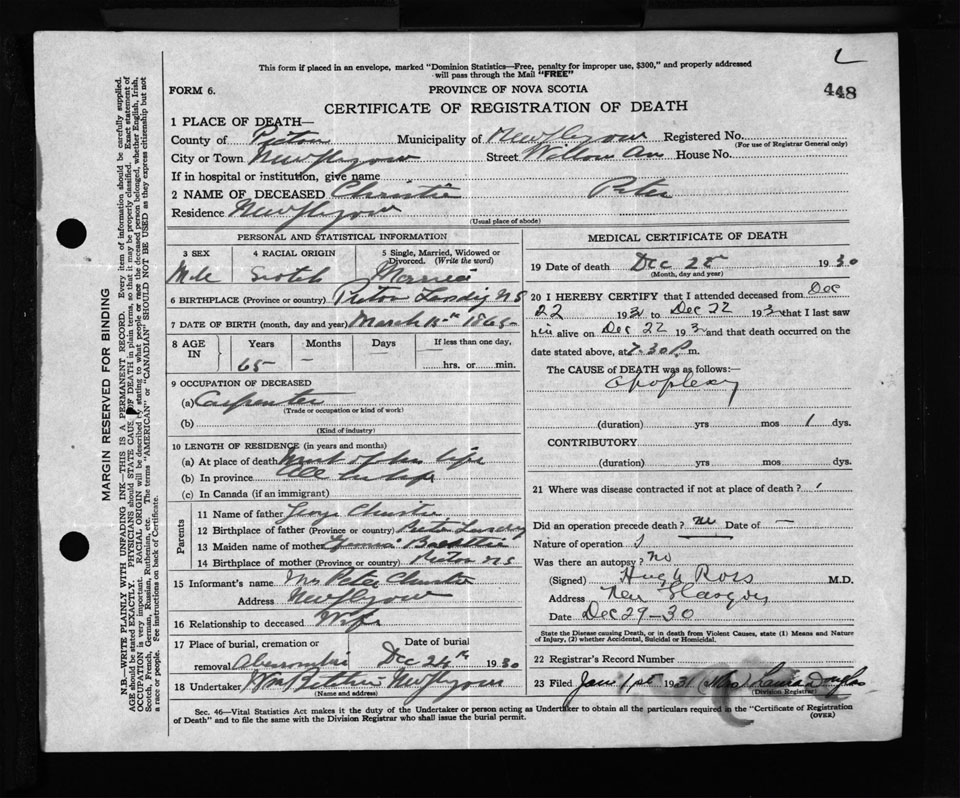 L
This form if placed in an envelope, marked "Dominion Statistics—Free, penalty for improper use, $300," and properly addressed
will pass through the Mail "FREE"
448
FORM 6.
PROVINCE OF NOVA SCOTIA
CERTIFICATE OF REGISTRATION OF DEATH
MARGIN RESERVED FOR BINDING
N.B.—WRITE PLAINLY WITH UNFADING INK—THIS IS A PERMANENT RECORD. Every item of information should be carefully supplied.
AGE should be stated EXACTLY. PHYSICIANS should STATE CAUSE OF DEATH in plain terms, so that it may be properly classified. Exact statement of
OCCUPATION is very important. RACIAL ORIGIN will be described by stating to what people or race the deceased person belonged, whether English, Irish,
Scotch, French, German, Russian, Ruthenian, etc. The terms "AMERICAN" or "CANADIAN" SHOULD NOT BE USED as they express citizenship but not
a race or people. See instructions on back of Certificate.
1 PLACE OF DEATH—
County of Pictou Municipality of New Glasgow Registered No.
(For use of Registrar General only)
City or Town New Glasgow Street Willow Av House No.
If in hospital or institution, give name
2 NAME OF DECEASED Christie Peter
Residence New Glasgow
(Usual place of abode)
PERSONAL AND STATISTICAL INFORMATION
3 SEX 4 RACIAL ORIGIN 5 Single, Married, Widowed or
Divorced. (Write the word)
Male Scotch Married
6 BIRTHPLACE (Province or country) Pictou Landing N S
7 DATE OF BIRTH (month, day and year) March 1865
8 AGE IN Years Months Days If less than one day,
65 — — hrs. or min.
9 OCCUPATION OF DECEASED
(a) Carpenter
(Trade or occupation or kind of work)
(b)
(Kind of industry)
10 LENGTH OF RESIDENCE (in years and months)
(a) At place of death Most of his life
(b) In province All his life
(c) In Canada (if an immigrant)
Parents
11 Name of father George Christie
12 Birthplace of father (Province or country) Pictou Landing
13 Maiden name of mother
14 Birthplace of mother (Province or country) Pictou N S
15 Informant's name Mrs Peter Christie
Address New Glasgow
16 Relationship to deceased Wife
17 Place of burial, cremation or Date of burial
removal Abercrombie Dec 1930
18 Undertaker Wm New Glasgow
(Name and address)
MEDICAL CERTIFICATE OF DEATH
19 Date of death Dec 1930
(Month, day and year)
20 I HEREBY CERTIFY that I attended deceased from Dec
22 193 to Dec 22 193 that I last saw
him alive on Dec 22 193 and that death occurred on
the date stated above, at 7.30 P. m.
The CAUSE of DEATH was as follows:
apoplexy
(duration) yrs mos 1 dys.
CONTRIBUTORY
(duration) yrs mos dys.
21 Where was disease contracted if not at place of death?
Did an operation precede death? no Date of —
Nature of operation
Was there an autopsy? no
(Signed) Hugh Ross M.D.
Address New Glasgow
Date Dec 29-30
State the Disease causing Death, or in death from Violent Causes, state (1) Means and Nature
of Injury, (2) whether Accidental, Suicidal or Homicidal.
22 Registrar's Record Number
23 Filed Jan 1st 1931 Mrs Laura Douglas
(Division Registrar)
Sec. 46—Vital Statistics Act makes it the duty of the Undertaker or person acting as Undertaker to obtain all the particulars required in the "Certificate of Registration
of Death" and to file the same with the Division Registrar who shall issue the burial permit.
(OVER)